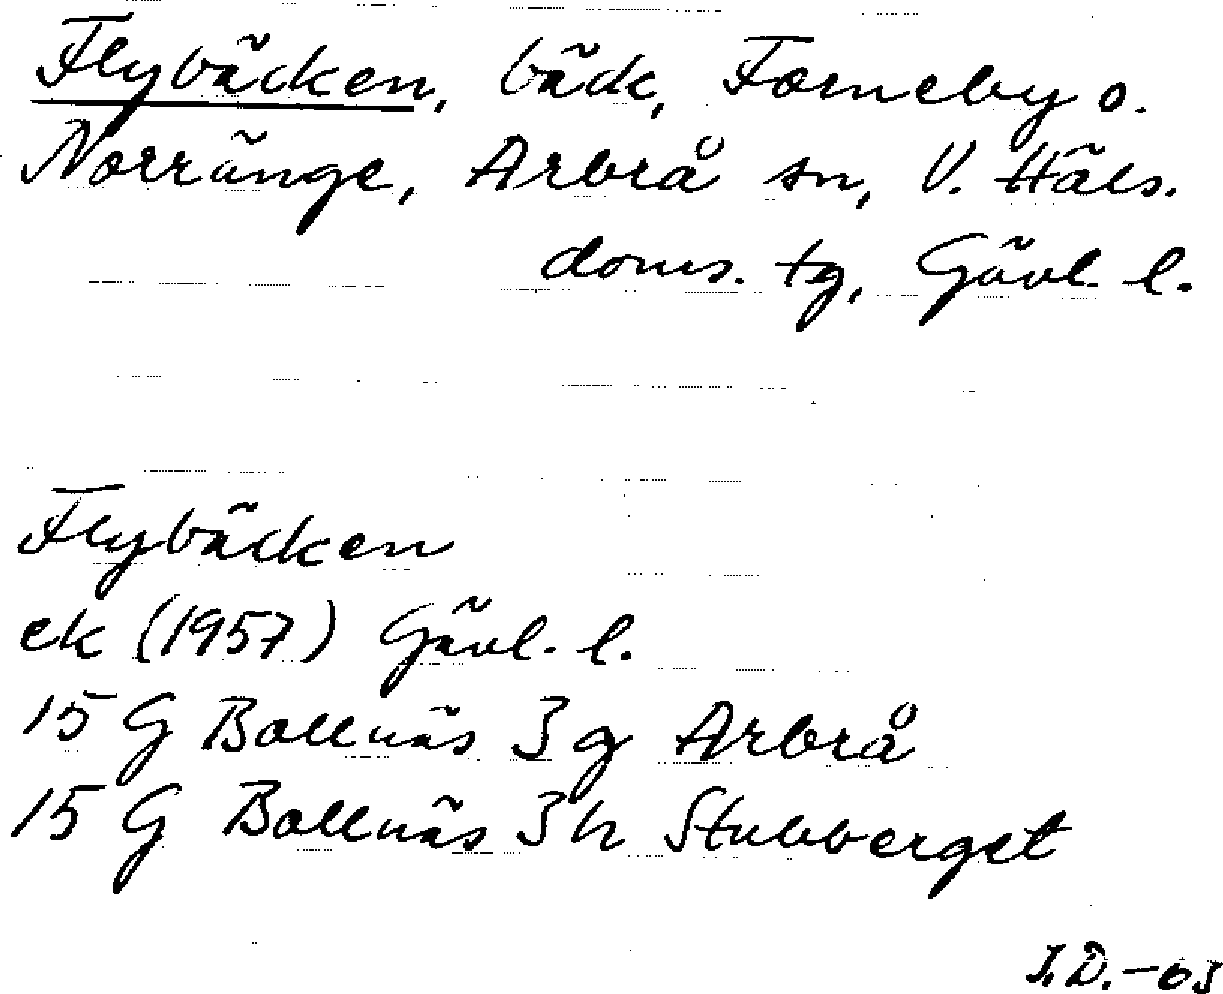 Flybäcken, bäck, Forneby o.
Norränge, Arbrå sn, V. Häls.
doms. tg, Gävl. l.
Flybäcken
ek (1957) Gävl. l.
15 G Bollnäs 3 g Arbrå
15 G Bollnäs 3 h Stubberget
I.D.-63